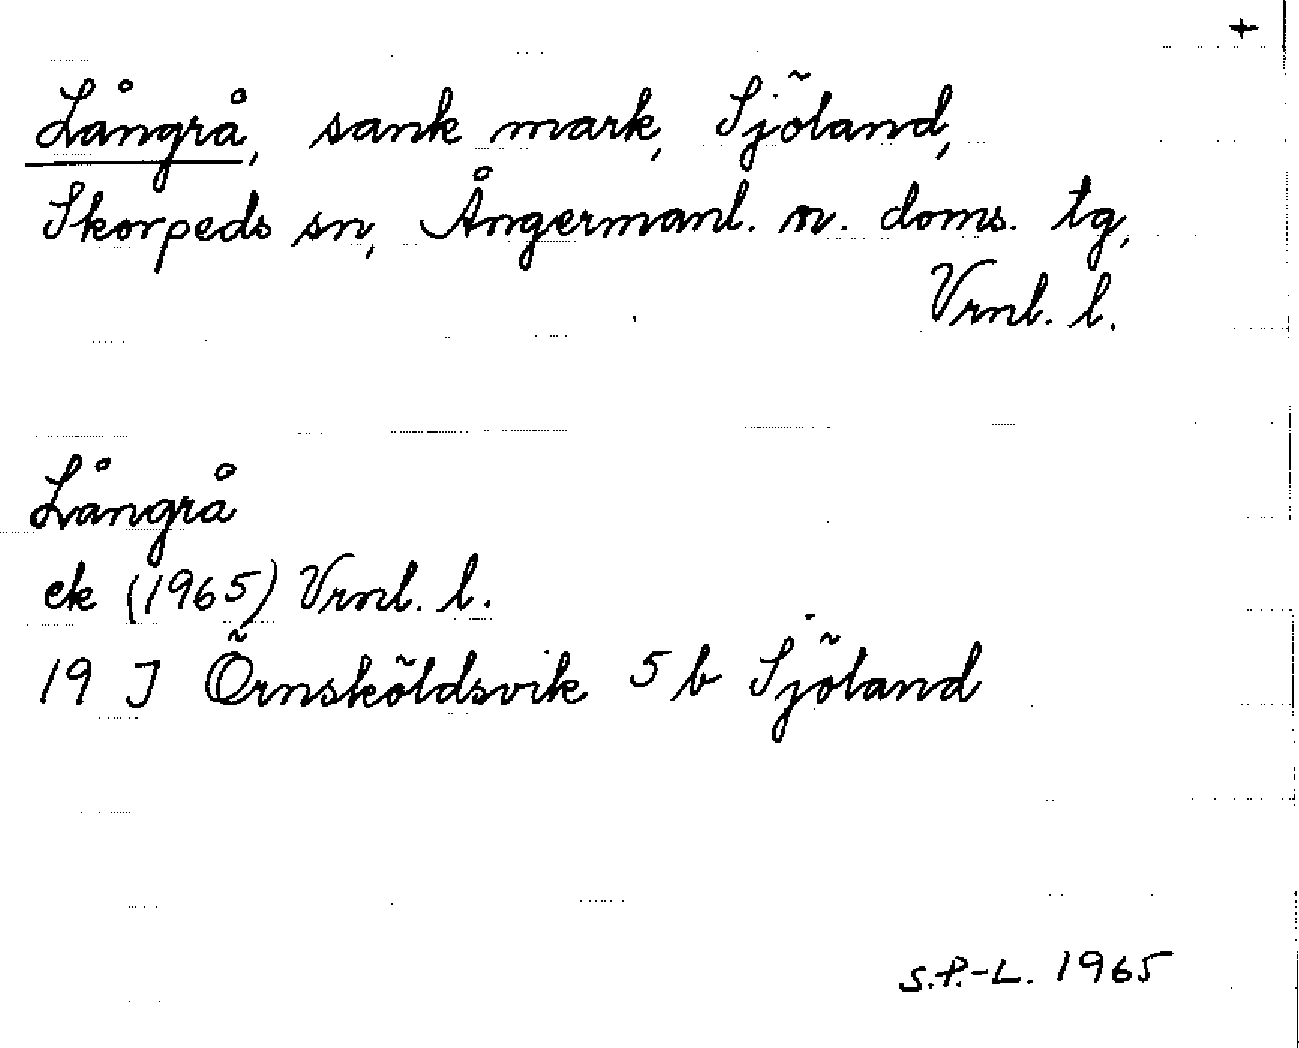 +
Långrå, sank mark, Sjöland,
Skorpeds sn, Ångermanl. n. doms. tg,
Vrnl. l.
Långrå
ek (1965) Vrnl. l.
19 J Örnsköldsvik 5 b Sjöland
S.P.-L. 1965